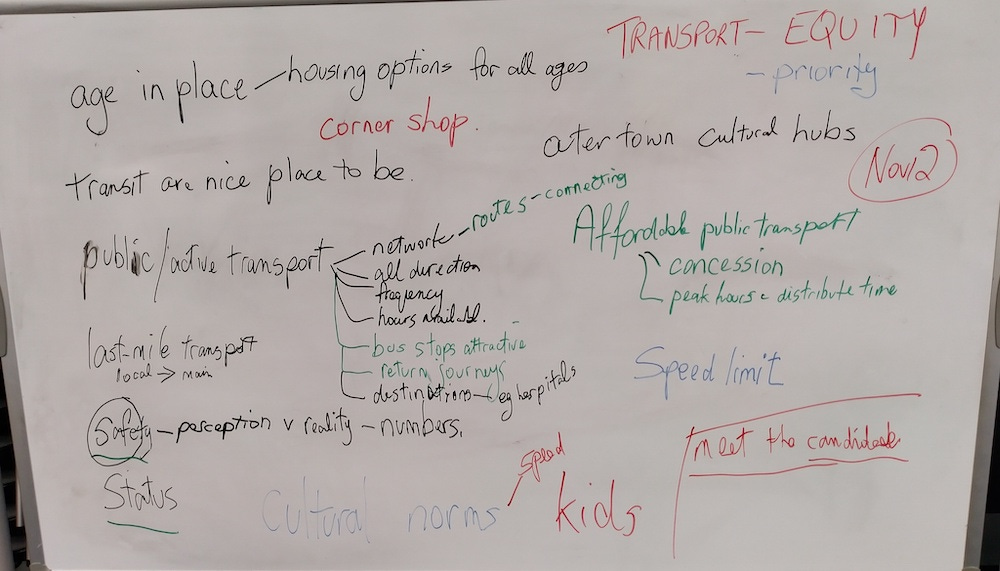 TRANSPORT - EQUITY
- priority
age in place - housing options for all ages
corner shop.
outer town cultural hubs
Nov 12
transit are nice place to be.
public/active transport
network - routes - connecting
all direction
frequency
hours availabl.
bus stops attractive
return journeys
destinations - eg hospitals
Affordable public transport
concession
peak hours - distribute time
last-mile transport
local → main
Speed limit
Safety - perception v reality - numbers.
Status
Cultural norms
speed
kids
meet the candidate